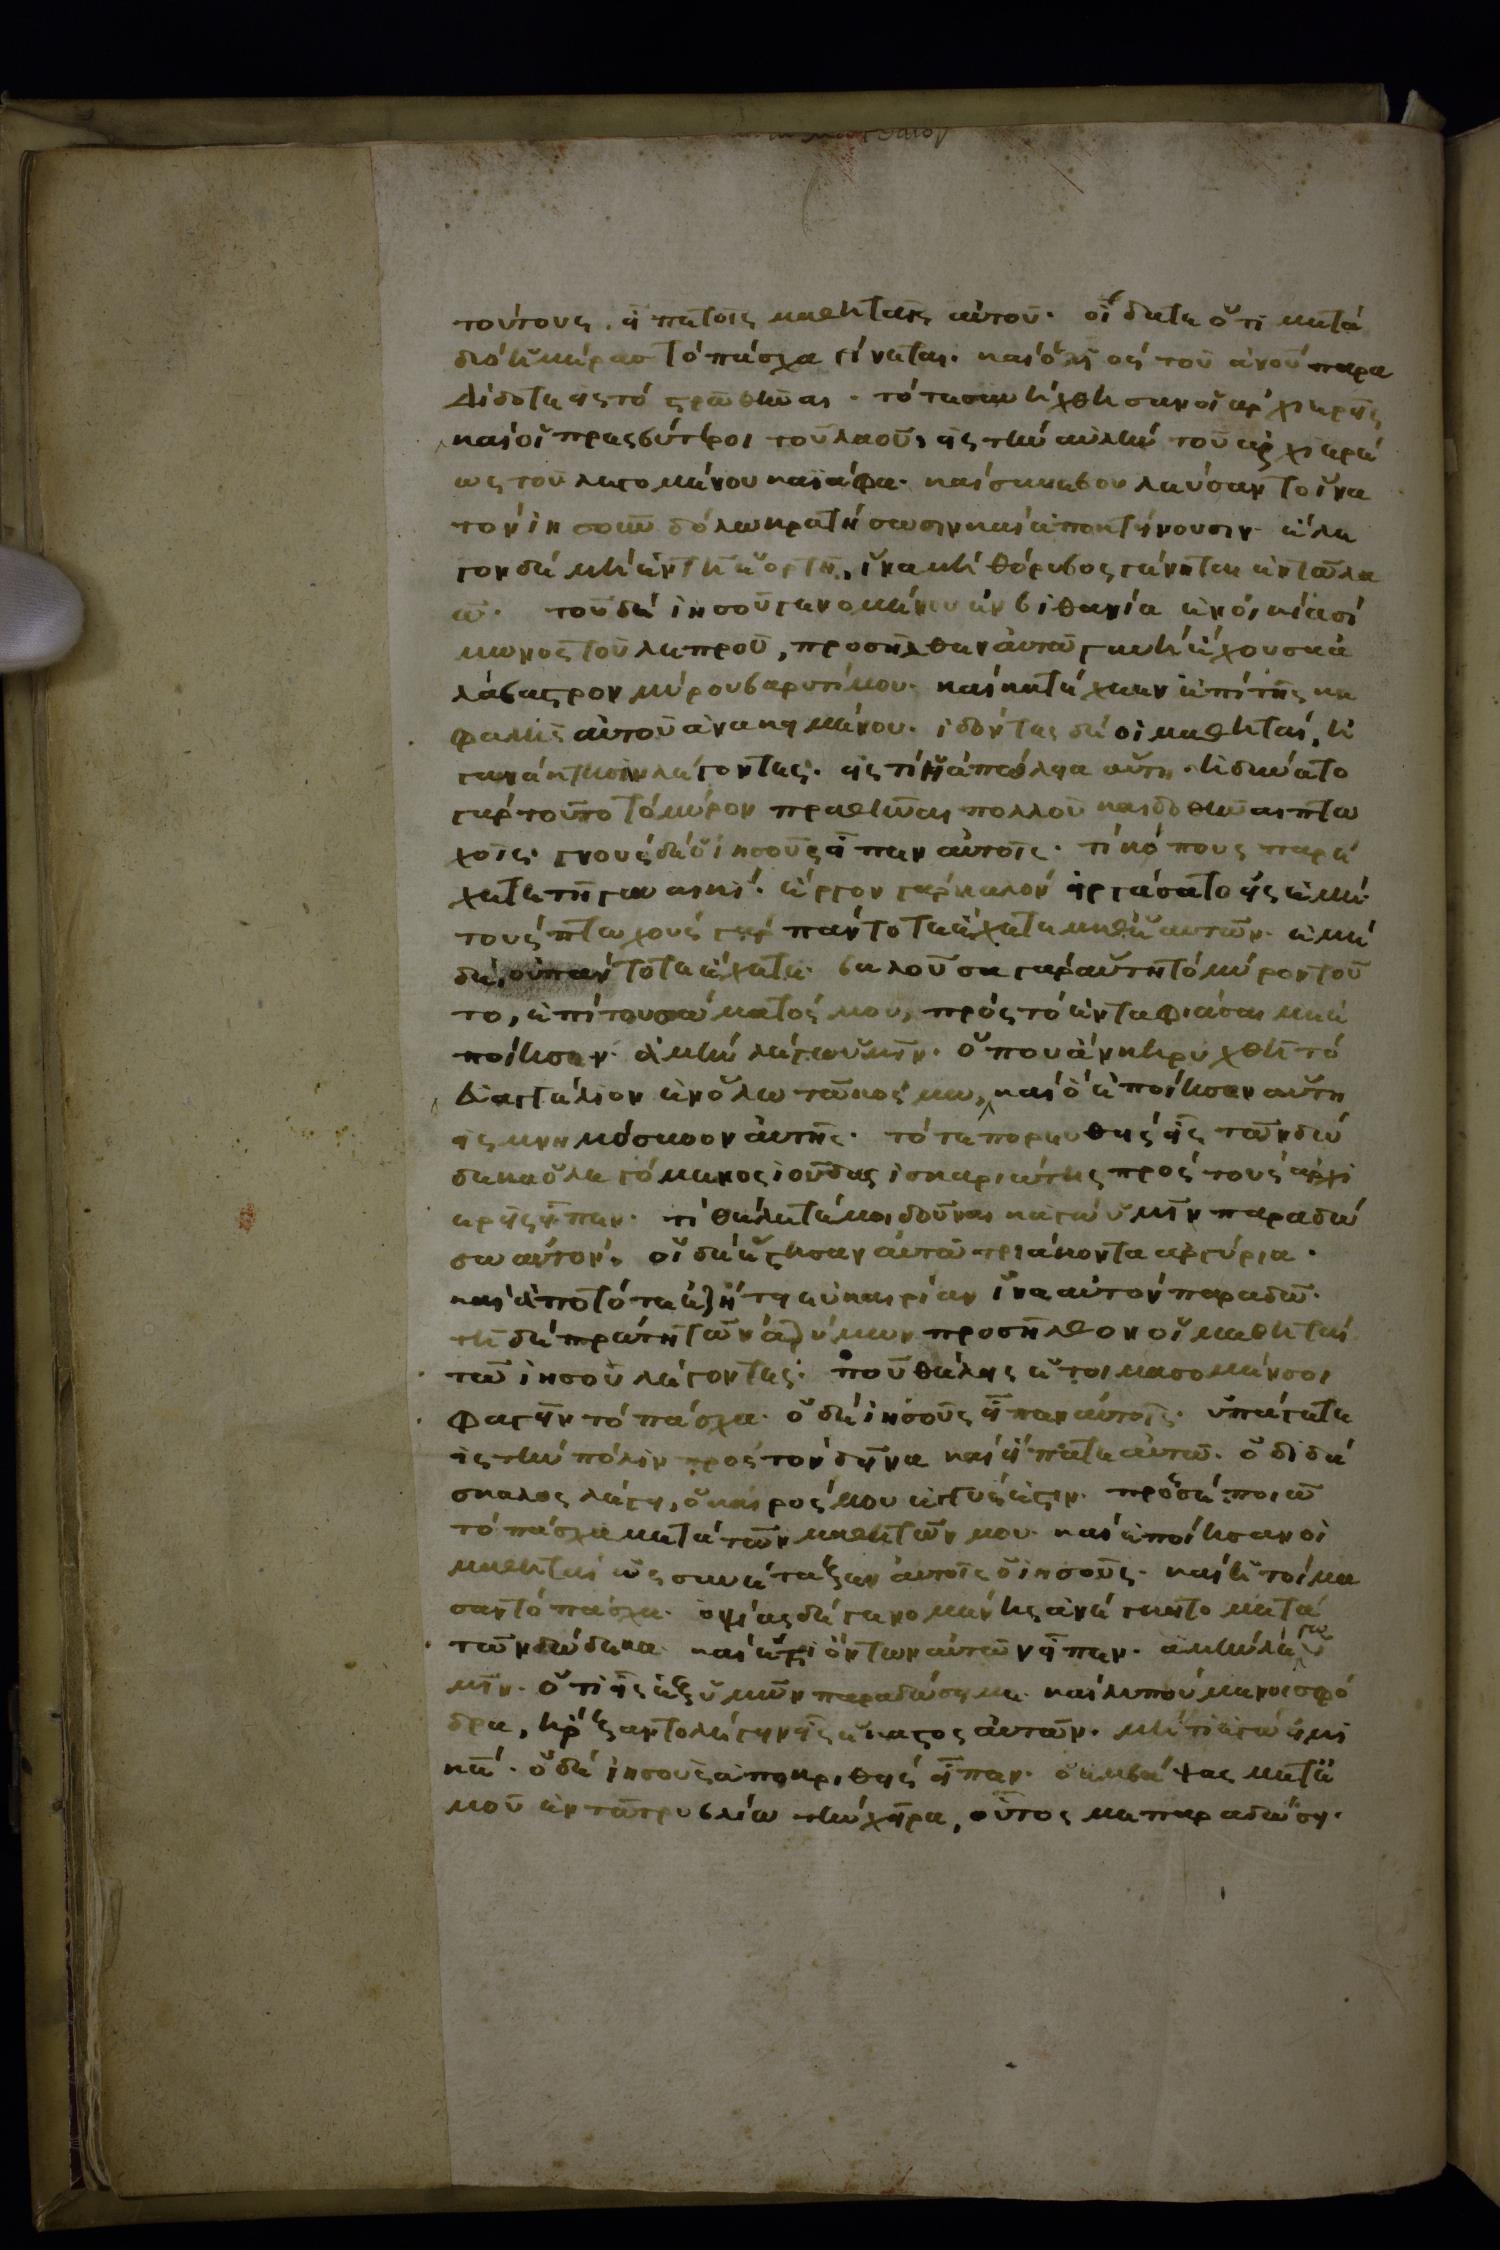 τούτους. εἶπε τοῖς μαθηταῖς αὐτοῦ· οἴδατε ὅτι μετὰ
δύο ἡμέρασ τὸ πάσχα γίνεται· καὶ ὁ υἱὸς τοῦ ἀνου παρα
δίδοτε εἰς τὸ σρωθῆναι· τότε συνήχθησαν οἱ αρχιερεῖς
καὶ οἱ πρεσβύτεροι τοῦ λαοῦ, εἰς τὴν αὐλὴν τοῦ ἀρχιερέ
ως τοῦ λεγομένου καϊάφα· καὶ συνεβουλεύσαντο ἵνα
τὸν ἰησοῦν δόλω κρατήσωσιν καὶ ἀποκτείνουσιν· ἔλε
γον δὲ μὴ ἐν τῆ ἑορτῆ, ἵνα μὴ θόρυβος γένηται ἐν τῶ λα
ῶ· τοῦ δὲ ἰησοῦ γενομένου ἐν βιθανία ἐν οἰκία σί
μωνος τοῦ λεπροῦ, προσῆλθεν αὐτῶ γυνὴ ἔχουσα ἀ
λάβαςρον μύρου βαρυτίμου· καὶ κατέχεεν ἐπὶ τῆς κε
φαλῆς αὐτοῦ ἀνακειμένου· ἰδόντες δὲ οἱ μαθηταὶ, ἠ
γανάκτησαν λέγοντες· εἰς τί ἡ ἀπώλεια αὕτη· ἠδύνατο
γὰρ τοῦτο τὸ μύρον πραθῆναι πολλοῦ καὶ δοθῆναι πτω
χοῖς· γνοὺς δὲ ὁ ἰησοῦς εἶπεν αὐτοῖς· τί κόπους παρέ
χετε τῆ γυναικί· ἔργον γὰρ καλὸν εἰργάσατο εἰς ἐμέ·
τοὺς πτωχοὺς γὰρ πάντοτε ἔχετε μεθ ἑαυτῶν· ἐμὲ
δὲ, οὐ πάντοτε ἔχετε· βαλοῦσα γὰρ αὕτη τὸ μύρον τοῦ
το, ἐπὶ του σώματός μου, πρὸς τὸ ἐνταφιάσαι με ἐ
ποίησεν· ἀμὴν λέγω ὑμῖν· ὅπου ἐὰν κηρυχθῆ τὸ
εὐαγγέλιον ἐν ὅλω τῶ κόσμω, καὶ ὃ ἐποίησεν αὕτη
εἰς μνημόσυνον αὐτῆς· τότε πορευθεὶς εἷς τῶν δώ
δεκα ὁ λεγόμενος ἰούδας ἰσκαριώτης πρὸς τοὺς ἀρχι
ερεῖς εἶπεν· τί θέλετέ μοι δοῦναι καγὼ ὑμῖν παραδώ
σω αὐτόν· οἱ δὲ ἔςησαν αὐτῶ τριάκοντα αργύρια·
καὶ ἀπὸ τότε ἐζήτει εὐκαιρίαν ἵνα αὐτὸν παραδῶ·
τῆ δὲ πρώτη τῶν ἀζύμων προσῆλθον οἱ μαθηταὶ
τῶ ἰησοῦ λέγοντες· ποῦ θέλεις ἑτοιμάσομέν σοι
φαγεῖν τὸ πάσχα· ὁ δὲ ἰησοῦς εἶπεν αὐτοῖς· ὑπάγετε
εἰς τὴν πόλιν πρὸς τον δεῖνα καὶ εἴπατε αὐτῶ· ὁ διδά
σκαλος λέγει, ὁ καιρός μου ἐγγύς ἐςιν· πρὸς σὲ ποιῶ
τὸ πάσχα μετὰ τῶν μαθητῶν μου· καὶ ἐποίησαν οἱ
μαθηταὶ ὡς συνέταξεν αὐτοῖς ὁ ἰησοῦς· καὶ ἡτοίμα
σαν τὸ πάσχα· ὀψίας δὲ γενομένης ἀνέκειτο μετὰ
τῶν δώδεκα· καὶ ἐσθιόντων αὐτῶν εἶπεν· ἀμὴν λέγω ὑ
μῖν· ὅτι εἷς ἐξ ὑμῶν παραδώσει με· καὶ λυπούμενοι σφό
δρα, ἤρξαντο λέγειν εἷς ἕκαςος αὐτῶν· μήτι ἐγώ εἰμι
κε· ὁ δὲ ἰησοὺς ἀποκριθεὶς εἶπεν· ὁ ἐμβάψας μετ ἐ
μοῦ ἐν τῶ τρυβλίω τὴν χεῖρα, οὗτος με παραδώσει·